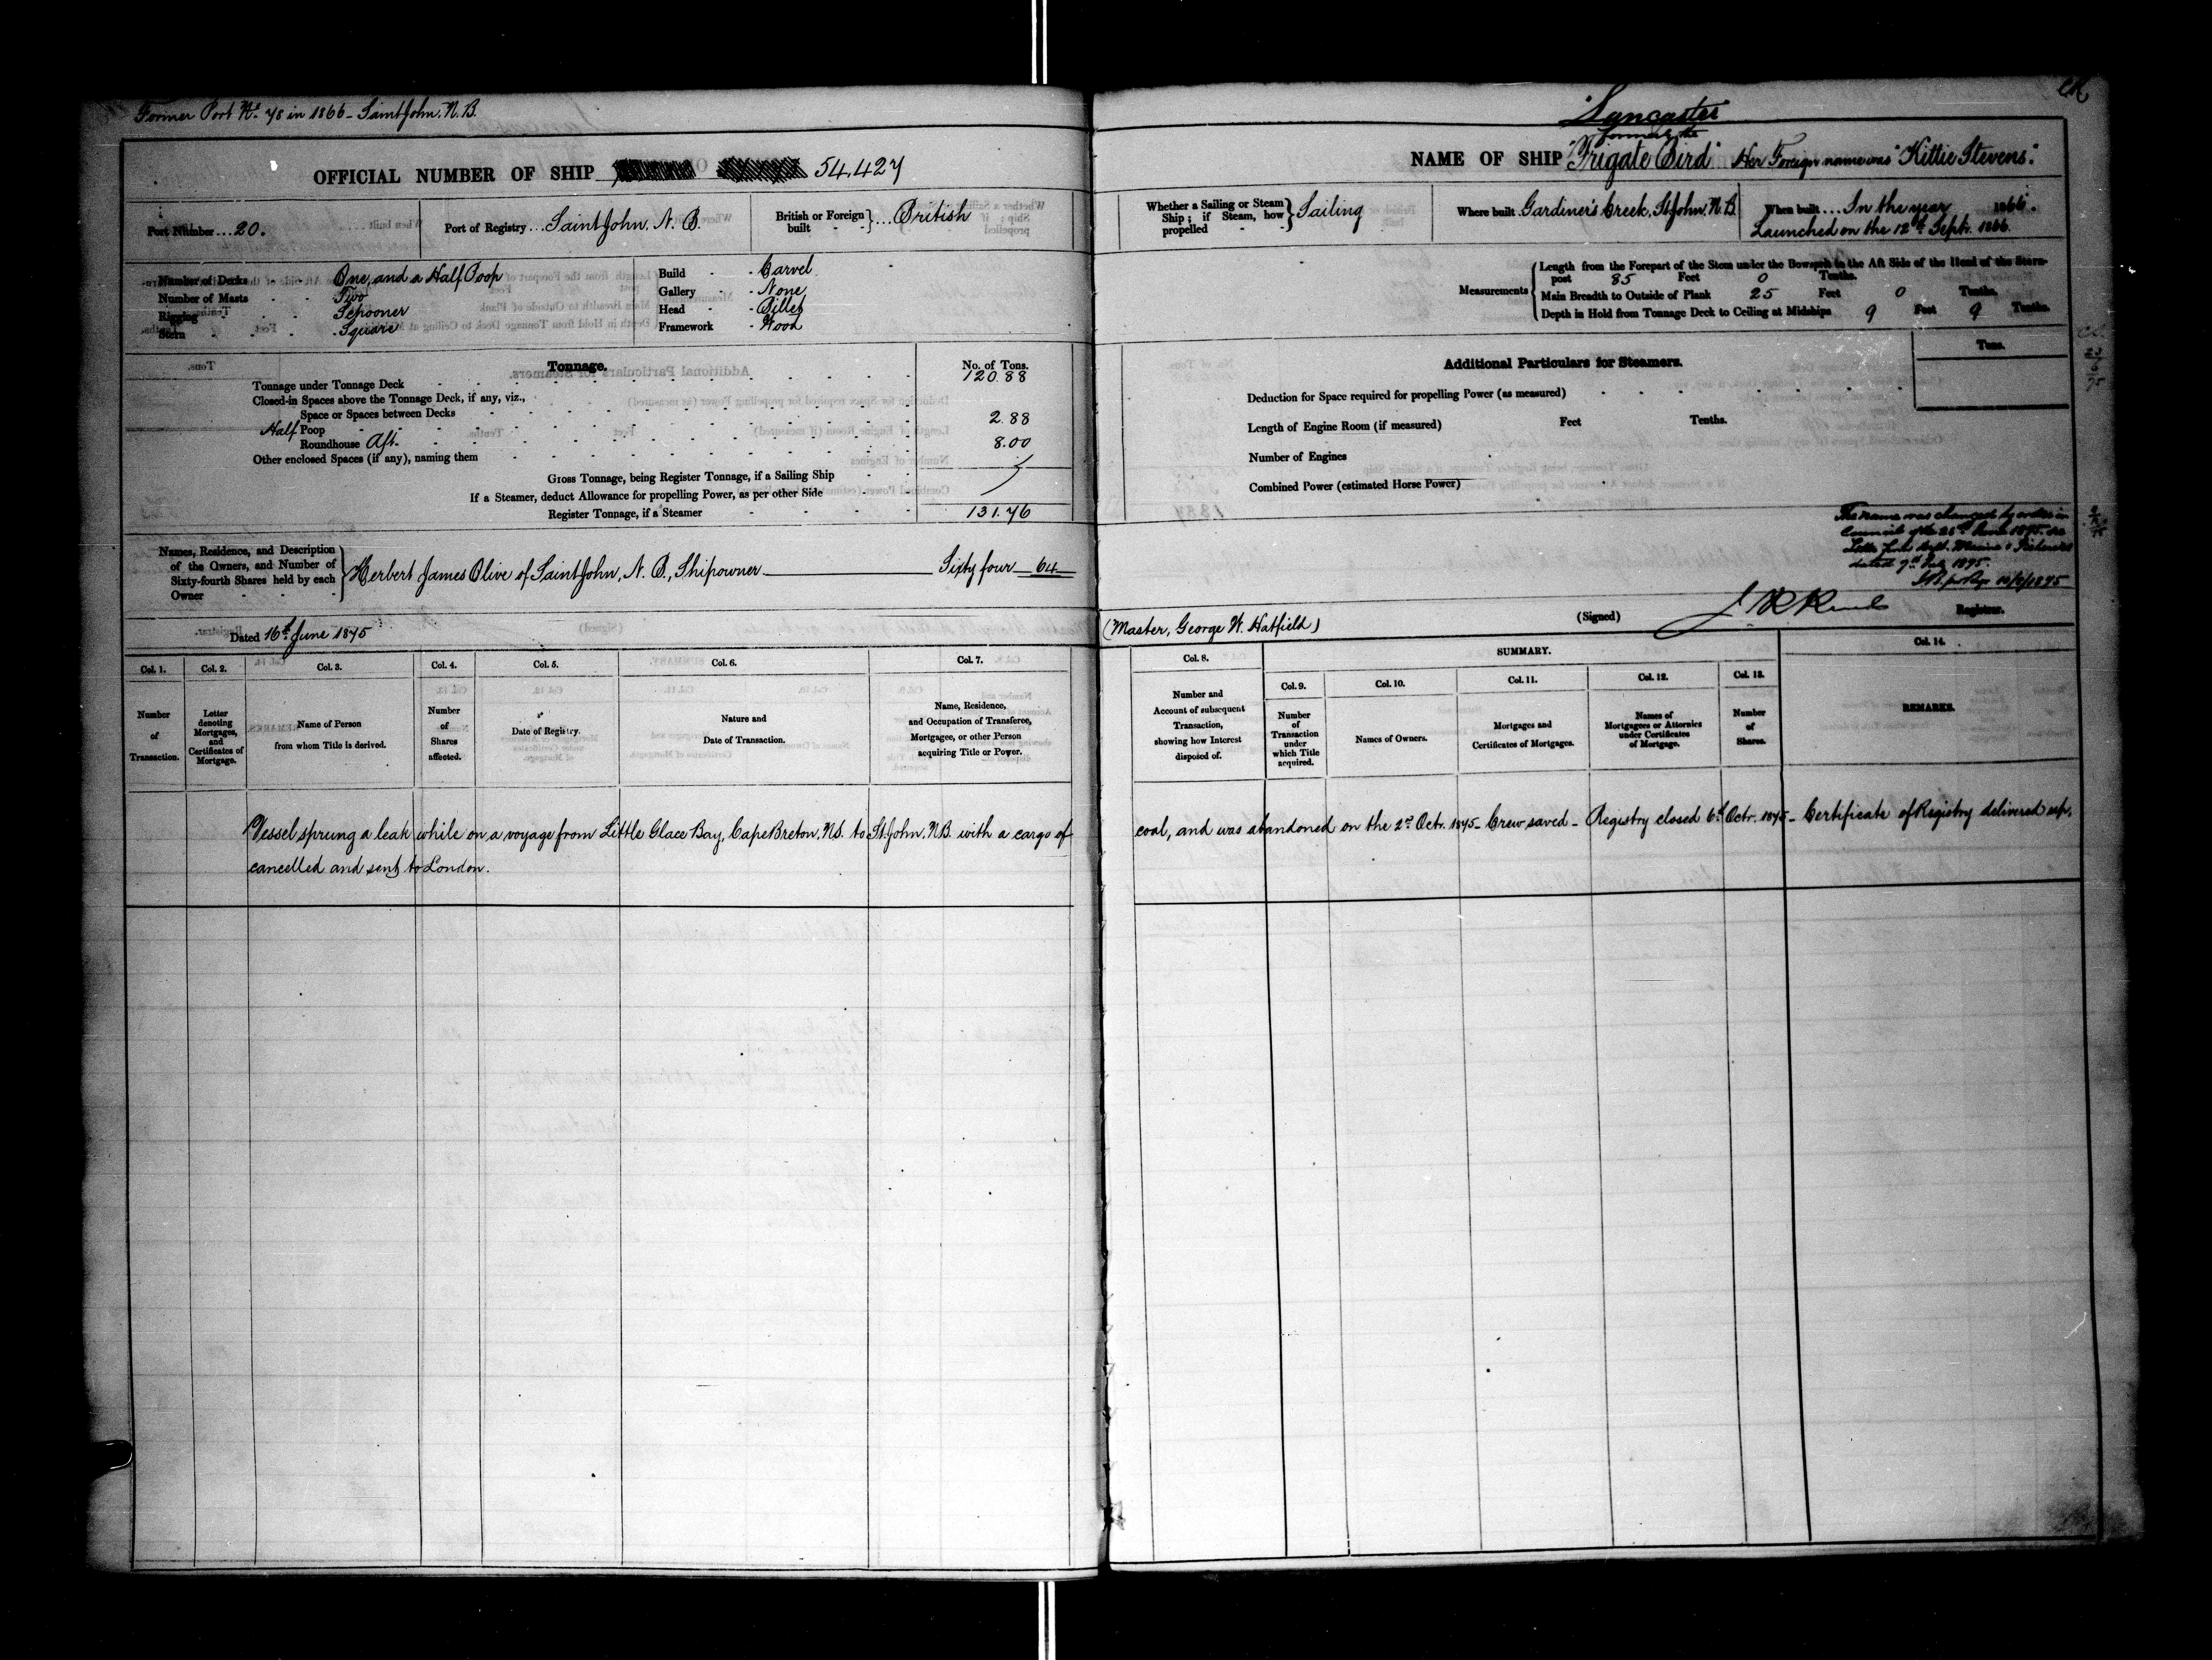 Former Port No. 78 in 1866 - Saint John. N.B.
OFFICIAL NUMBER OF SHIP 54.427
Port Number ... 20.
Port of Registry ... Saint John. N. B.
British or Foreign built British
Number of Decks One, and a Half Poop
Number of Masts Two
Rigging Schooner
Stern Square
Build Carvel
Gallery None
Head Billet
Framework Wood
Tonnage. No. of Tons.
Tonnage under Tonnage Deck 120.88
Closed-in Spaces above the Tonnage Deck, if any, viz.,
Space or Spaces between Decks
Half Poop 2.88
Roundhouse Aft. 8.00
Other enclosed Spaces (if any), naming them
Gross Tonnage, being Register Tonnage, if a Sailing Ship
If a Steamer, deduct Allowance for propelling Power, as per other Side
Register Tonnage, if a Steamer 131.76
Names, Residence, and Description of the Owners, and Number of Sixty-fourth Shares held by each Owner
Herbert James Olive of Saint John, N. B., Shipowner Sixty four 64
Dated 16th June 1875
Col. 1. Col. 2. Col. 3. Col. 4. Col. 5. Col. 6. Col. 7.
Number of Transaction.
Letter denoting Mortgages, and Certificates of Mortgage.
Name of Person from whom Title is derived.
Number of Shares affected.
Date of Registry.
Nature and Date of Transaction.
Name, Residence, and Occupation of Transferee, Mortgagee, or other Person acquiring Title or Power.
Lancaster
formerly the
NAME OF SHIP "Frigate Bird" Her Foreign name was "Kittie Stevens".
Whether a Sailing or Steam Ship; if Steam, how propelled Sailing
Where built Gardiner's Creek, St John, N.B.
When built ... In the year 1866.
Launched on the 12th Septr. 1866.
Measurements
Length from the Forepart of the Stem under the Bowsprit to the Aft Side of the Head of the Stern-
post 85 Feet 0 Tenths.
Main Breadth to Outside of Plank 25 Feet 0 Tenths.
Depth in Hold from Tonnage Deck to Ceiling at Midships 9 Feet 9 Tenths.
Additional Particulars for Steamers.
Tons.
Deduction for Space required for propelling Power (as measured)
Length of Engine Room (if measured) Feet Tenths.
Number of Engines
Combined Power (estimated Horse Power)
The name was changed by order in
Council of the 26th June 1875. see
Letter from Dept. Marine & Fisheries
dated 7th July 1875.
(Master, George W. Hatfield) (Signed) Registrar.
Col. 8. SUMMARY. Col. 14.
Col. 9. Col. 10. Col. 11. Col. 12. Col. 13.
Number and Account of subsequent Transaction, showing how Interest disposed of.
Number of Transaction under which Title acquired.
Names of Owners.
Mortgages and Certificates of Mortgages.
Names of Mortgagees or Attornies under Certificates of Mortgage.
Number of Shares.
REMARKS.
Vessel sprung a leak while on a voyage from Little Glace Bay, Cape Breton, N.S. to St. John. N.B. with a cargo of coal, and was abandoned on the 2nd Octr. 1875 - Crew saved - Registry closed 6th Octr. 1875 - Certificate of Registry delivered up,
cancelled and sent to London.